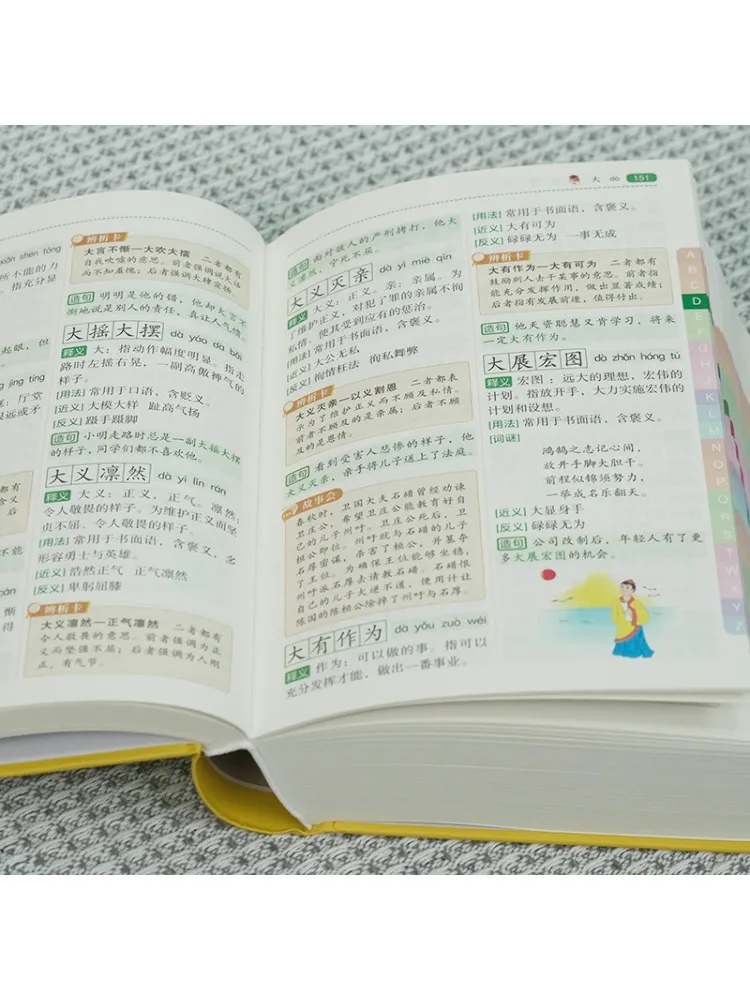 xiān shēn
所不能的力
指充分显
起眼,但
厅堂
很远或矛
惭
得
辨析卡
大言不惭—大吹大擂 二者都有
自我吹嘘的意思。前者强调说大话
而不知羞愧;后者强调大肆发扬。
造句 明明是他的错,他却大言不
惭地说是别人的责任,真让人气愤。
大摇大摆 dà yáo dà bǎi
释义 大:指动作幅度明显。指走
路时左摇右晃,一副高傲神气的
样子。
[用法]常用于口语,含贬义。
[近义]大模大样 趾高气扬
[反义]蹑手蹑脚
造句 小明走路时总是一副大摇大摆
的样子,同学们都不喜欢他。
大义凛然 dà yì lǐn rán
释义 大义:正义,正气。凛然:
令人敬畏的样子。为维护正义而坚
贞不屈、令人敬畏的样子。
[用法]常用于书面语,含褒义,多
形容勇士与英雄。
[近义]浩然正气 正气凛然
[反义]卑躬屈膝
辨析卡
大义凛然—正气凛然 二者都有
令人敬畏的意思。前者强调为正
义而坚强不屈;后者强调为人刚
正,有气节。
大 dà 151
造句 面对敌人的严刑拷打,他大
义凛然,宁死不屈。
大义灭亲 dà yì miè qīn
释义 大义:正义。亲:亲属。为
了维护正义,对犯了罪的亲属不徇
私情,使其受到应有的惩治。
[用法]常用于书面语,含褒义。
[近义]大公无私
[反义]徇情枉法 徇私舞弊
辨析卡
大义灭亲—以义割恩 二者都表
示为了维护正义而不顾及私情。
前者不顾及的是亲属;后者不顾
及的是恩情。
造句 看到受害人悲惨的样子,他
大义灭亲,亲手将儿子送上了法庭。
故事会
春秋时,卫国大夫石碏曾经劝谏
卫庄公,希望卫庄公能教育好自
己的儿子州吁。卫庄公死后,卫
桓公即位。州吁就与石碏的儿子
石厚密谋,杀害了桓公,并篡夺
了王位。为确保王位能够坐稳,
州吁派石厚去请教石碏。石碏恨
自己的儿子大逆不道,便用计让
陈国的陈桓公除掉了州吁与石厚。
大有作为 dà yǒu zuò wéi
释义 作为:可以做的事。指可以
充分发挥才能,做出一番事业。
[用法]常用于书面语,含褒义。
[近义]大有可为
[反义]碌碌无为 一事无成
辨析卡
大有作为—大有可为 二者都有
鼓励别人去干某事的意思。前者指
能充分发挥作用,做出显著成绩;
后者指有发展前途,值得付出。
造句 他天资聪慧又肯学习,将来
一定大有作为。
大展宏图 dà zhǎn hóng tú
释义 宏图:远大的理想,宏伟的
计划。指放开手,大力实施宏伟的
计划和设想。
[用法]常用于书面语,含褒义。
[词谜]
鸿鹄之志记心间,
放开手脚大胆干。
前程似锦须努力,
一举成名乐翻天。
[近义]大显身手
[反义]碌碌无为
造句 公司改制后,年轻人有了更
多大展宏图的机会。
A
B
C
D
E
F
G
H
J
K
L
M
N
O
P
Q
R
S
T
W
X
Y
Z